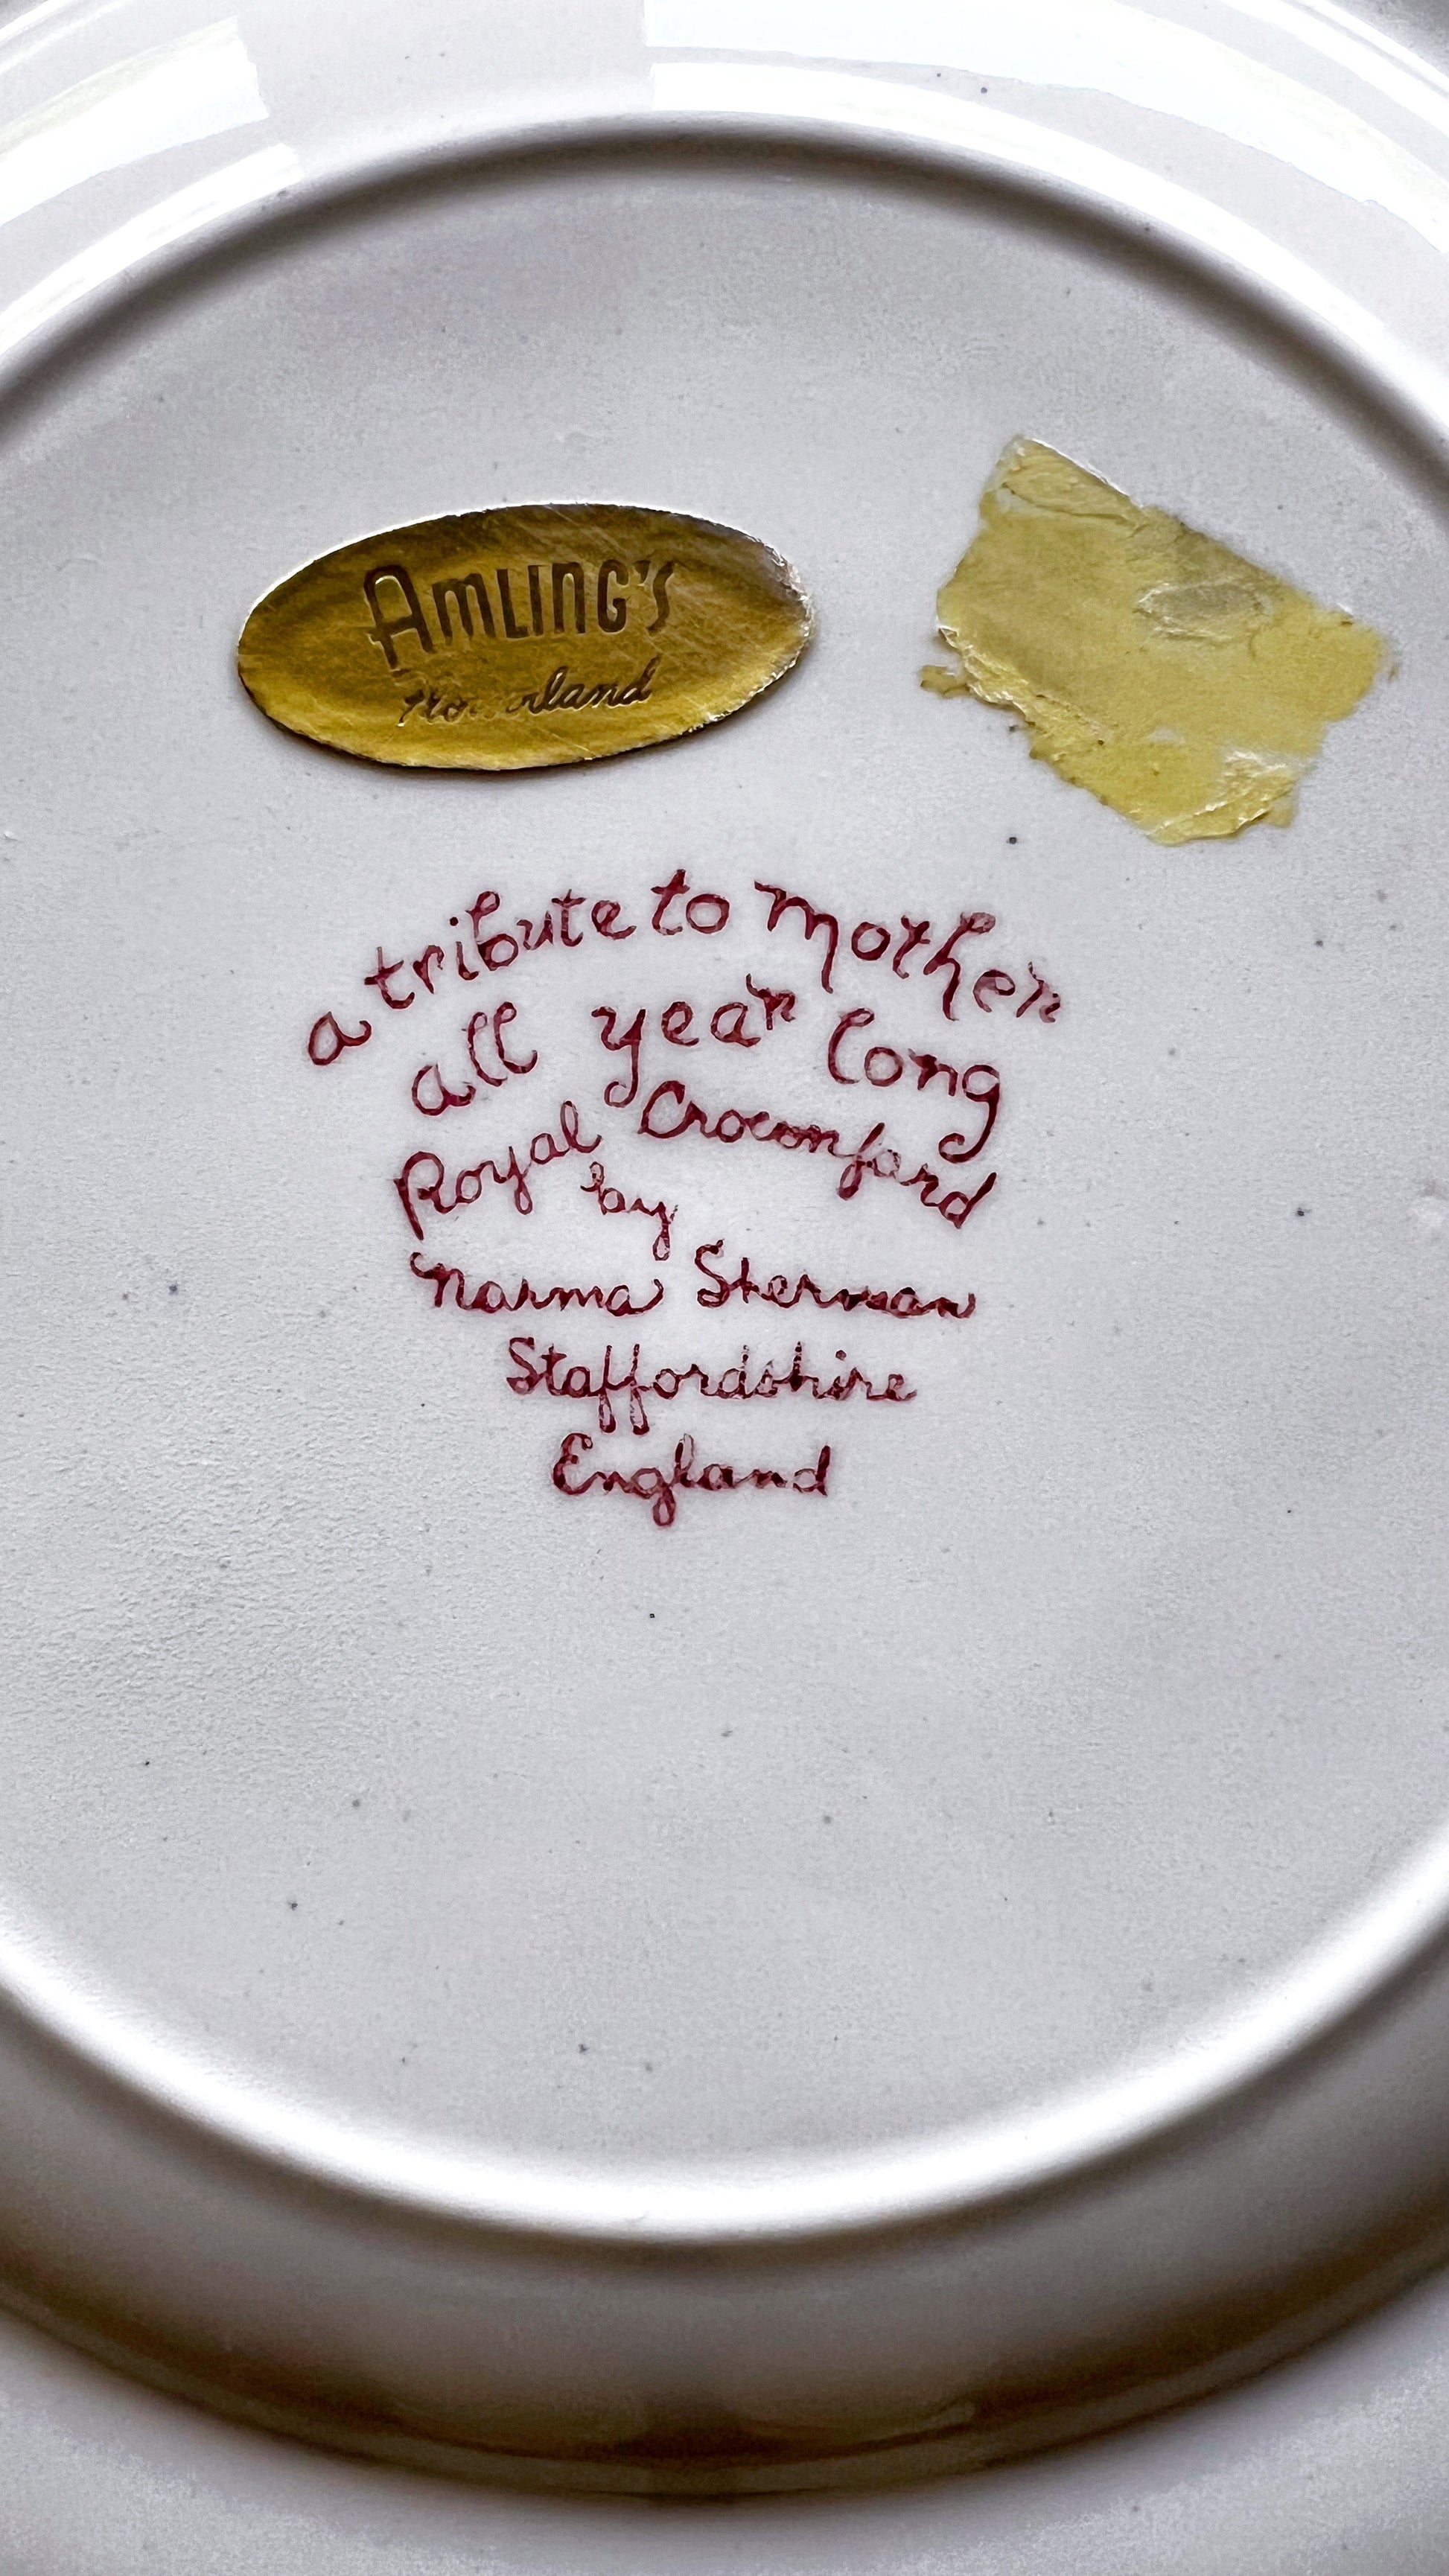 AMLING'S
Flowerland
a tribute to mother
all year long
Royal Crownford
by
Norma Sherman
Staffordshire
England